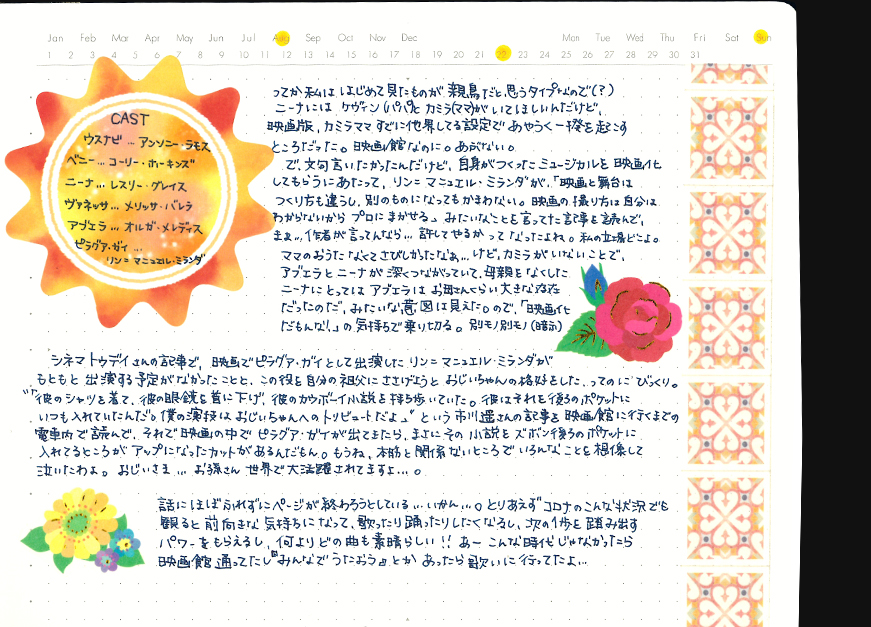 Jan Feb Mar Apr May Jun Jul Aug Sep Oct Nov Dec Mon Tue Wed Thu Fri Sat Sun
1 2 3 4 5 6 7 8 9 10 11 12 13 14 15 16 17 18 19 20 21 22 23 24 25 26 27 28 29 30 31
CAST
ウスナビ … アンソニー・ラモス
ベニー … コーリー・ホーキンズ
ニーナ … レスリー・グレイス
ヴァネッサ … メリッサ・バレラ
アブエラ … オルガ・メレディス
ピラグア・ガイ …
リン=マニュエル・ミランダ
ってか私は はじめて見たものが 親鳥だと思うタイプなので(?)
ニーナには ケヴィン(パパ)と カミラ(ママ)が いてほしいんだけど、
映画版、カミラママ すでに他界してる設定で あやうく一揆を起こす
ところだった。映画館なのに。あぶない。
で、文句言いたかったんだけど、自身がつくったミュージカルを映画化
してもらうにあたって、リン=マニュエル・ミランダが、「映画と舞台は
つくり方も違うし、別のものになってもかまわない。映画の撮り方は自分は
わからないから プロにまかせる。」みたいなことを言ってた記事を読んで、
まぁ…作者が言ってんなら… 許してせるかって なったよね。私の立場どこよ。
ママのおうたなくてさびしかったなぁ… けど、カミラがいないことで、
アブエラとニーナが 深くつながっていて、母親をなくした
ニーナにとっては アブエラは お母さんくらい大きな存在
だったのだ、みたいな意図は見えた。ので、「映画化
だもんな!」の気持ちで乗り切る。別モノ別モノ(暗示)
シネマトゥデイさんの記事で、映画でピラグア・ガイとして出演した リン=マニュエル・ミランダが
もともと 出演する予定がなかったことと、この役を自分の祖父にささげようと おじいちゃんの格好をした、ってのにびっくり。
"「彼のシャツを着て、彼の眼鏡を首に下げ、彼のカウボーイ小説を持ち歩いていた。彼はそれを後ろのポケットに
いつも入れていたんだ。僕の演技はおじいちゃんへのトリビュートだよ」" という市川遥さんの記事を映画館に行くまでの
電車内で読んで、それで映画の中で ピラグア・ガイが出てきたら、まさにその 小説を ズボン後ろのポケットに
入れてるところが アップになったカットがあるんだもん。もうね、本筋と関係ないところで いろんなことを想像して
泣いたわよ。おじいさま… お孫さん 世界で大活躍されてますよ…。
話にほぼふれずにページが終わろうとしている… いかん…。とりあえず コロナのこんな状況でも
観ると 前向きな気持ちになって、歌ったり踊ったりしたくなるし、次の1歩を踏み出す
パワーをもらえるし、何よりどの曲も素晴らしい!! あー こんな時代じゃなかったら
映画館通ってたし『みんなでうたおう』とか あったら歌いに行ってたよ…